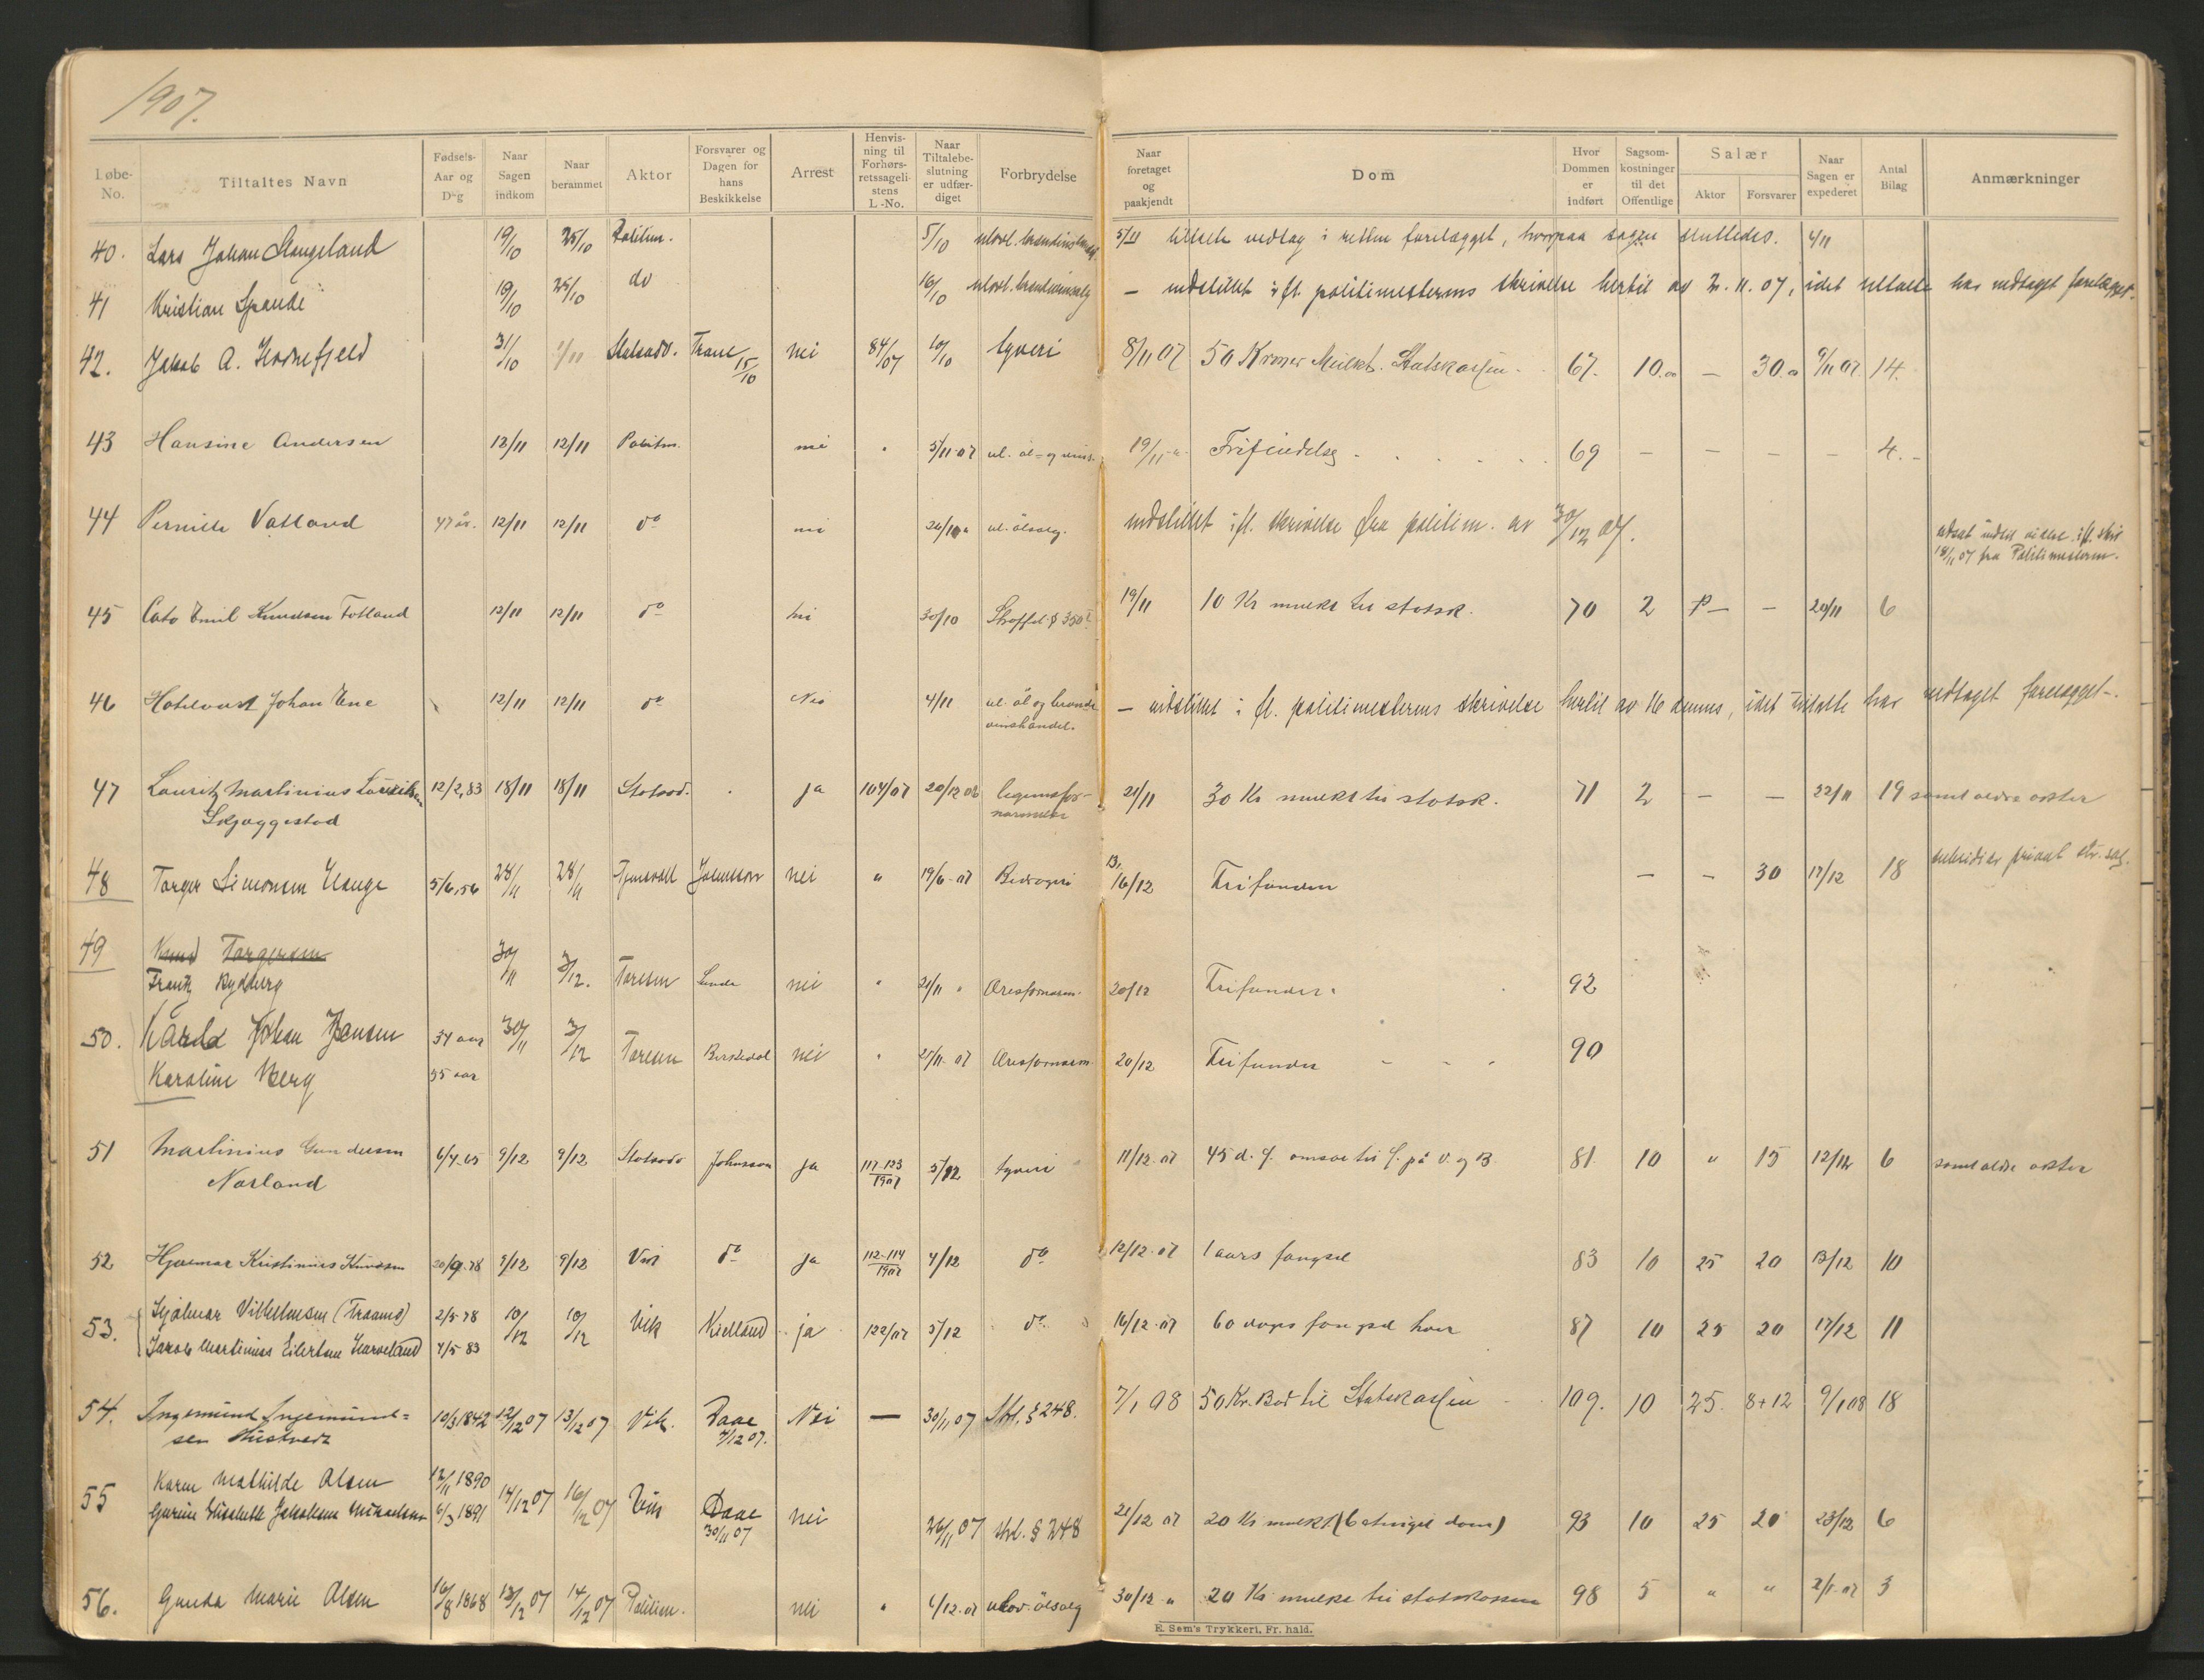 1907.
Løbe-No. Tiltaltes Navn Fødsels-Aar og Dag Naar Sagen indkom Naar berammet Aktor Forsvarer og Dagen for hans Beskikkelse Arrest Henvisning til Forhørsretssagelistens L.-No. Naar Tiltalebeslutning er udfærdiget Forbrydelse Naar foretaget og paakjendt Dom Hvor Dommen er indført Sagsomkostninger til det Offentlige Salær Aktor Forsvarer Naar Sagen er expederet Antal Bilag Anmærkninger
40. Lars Johan Stangeland 19/10 25/10 Politim. 5/10 5/11 tiltalte vedtog i retten forelægget, hvorpaa sagen sluttedes. 6/11
41 Kristian Spande 19/10 25/10 do 16/10 ulovl. brændevinsalg — indstillet ifl. politimesterens skrivelse hertil av 2.11.07, idet tiltalte har vedtaget forelægget.
42. Jakob A. Hodnefjeld 31/10 1/11 Statsadv. Trane 15/10 nei 84/07 10/10 tyveri 8/11 07 50 Kroner Mulkt. Statskassen. 67. 10.00 — 30.00 9/11 07 14.
43 Hansine Andersen 12/11 12/11 Politim. nei " 5/11-07 ul. øl- og vins. 19/11 " Frifindelse 69 — — — — 4.-
44 Pernille Vatland 47 år. 12/11 12/11 do nei 26/10 " ul. ølsalg. indstillet ifl. skrivelse fra politim. av 30/12 07. udsat indtil videre ifl. skr.
18/11 07 fra Politimesteren.
45 Cato Emil Knudsen Totland 12/11 12/11 do nei 30/10 Straffel. § 350 19/11 10 Kr mulkt til statsk. 70 2 — — 20/11 6
46 Hotelvært Johan Ene 12/11 12/11 do Nei 4/11 ul. øl og brænde — indstillet ifl. politimesterens skrivelse hertil av 16 dennes, idet tiltalte har vedtaget forelægget.
vinshandel.
47 Lauritz Martinius Lauritsen 12/2,83 18/11 18/11 Statsad. . ja 104/07 20/12 06 legemsfor- 21/11 30 Kr mulkt til statsk. 71 2 — — 22/11 19 samt ældre akter
Skjæggestad nærmelse
48 Torger Simonsen Hauge 5/6,56 28/11 28/11 Johnsson nei " 19/6-07 Bedrageri 13, 16/12 Frifunden — — 30 17/12 18 subsidier privat str. sag.
49 Knud Torgersen 30/11 3/12.
Frantz Rydberg Toresen Lunde nei " 21/11 " Æresfornærm. 20/12 Frifunden 92
50. Harald Johan Jensen 34 aar 30/11 3/12 Toresen Birkedal nei " 27/11-07 Æresfornærm. 20/12 Frifunden 90
Karoline Berg 55 aar
51 Martinius Gundersen 6/4-65 9/12 9/12 Statsadv Johnsson ja 117-123/1907 5/12 tyveri 11/12-07 45 d. f. omsat til f. på v. og B. 81 10 " 15 12/12 6 samt ældre akter
Narland
52 Hjalmar Kristinius Knudsen 20/9-78 9/12 9/12 Vik do ja 112-114/1907 4/12 do 12/12-07 1 aars fængsel 83 10 25 20 13/12 10
53. Hjalmar Vilhelmsen (Traams) 2/5-78 10/12 10/12 Vik Kielland ja 122/07 5/12 do 16/12-07 60 dages fængsel hver 87 10 25 20 17/12 11
Jakob Martinius Eilertsen Harveland 4/5 83
54. Ingemund Ingemund= 10/3 1842 12/12 07 13/12 07 Vik. Daae 4/12 07. Nei — 30/11 07 Strl. § 248. 7/1 08 50 Kr. Bod til Statskassen 109. 10 25. 8+12 9/1 08 18
sen Hustvedt
55 Karen Mathilde Olsen 12/11 1890 14/12 07 16/12 07 Vik Daae 30/11 07 nei 26/11 07 strl. § 248 21/12 07 20 Kr mulkt (betinget dom) 93 10 25 20 23/12 6
Gurine Elisabeth Jakobsen Mikaelsen 6/3 1891
56. Gunda Marie Olsen 16/8 1868 13/12 07 14/12 07 Politim. nei " 6/12-07 ulov. ølsalg 30/12-" 20 Kr mulkt til statskassen 98 5 " " 2/1-07 3
E. Sem's Trykkeri, Fr. hald.